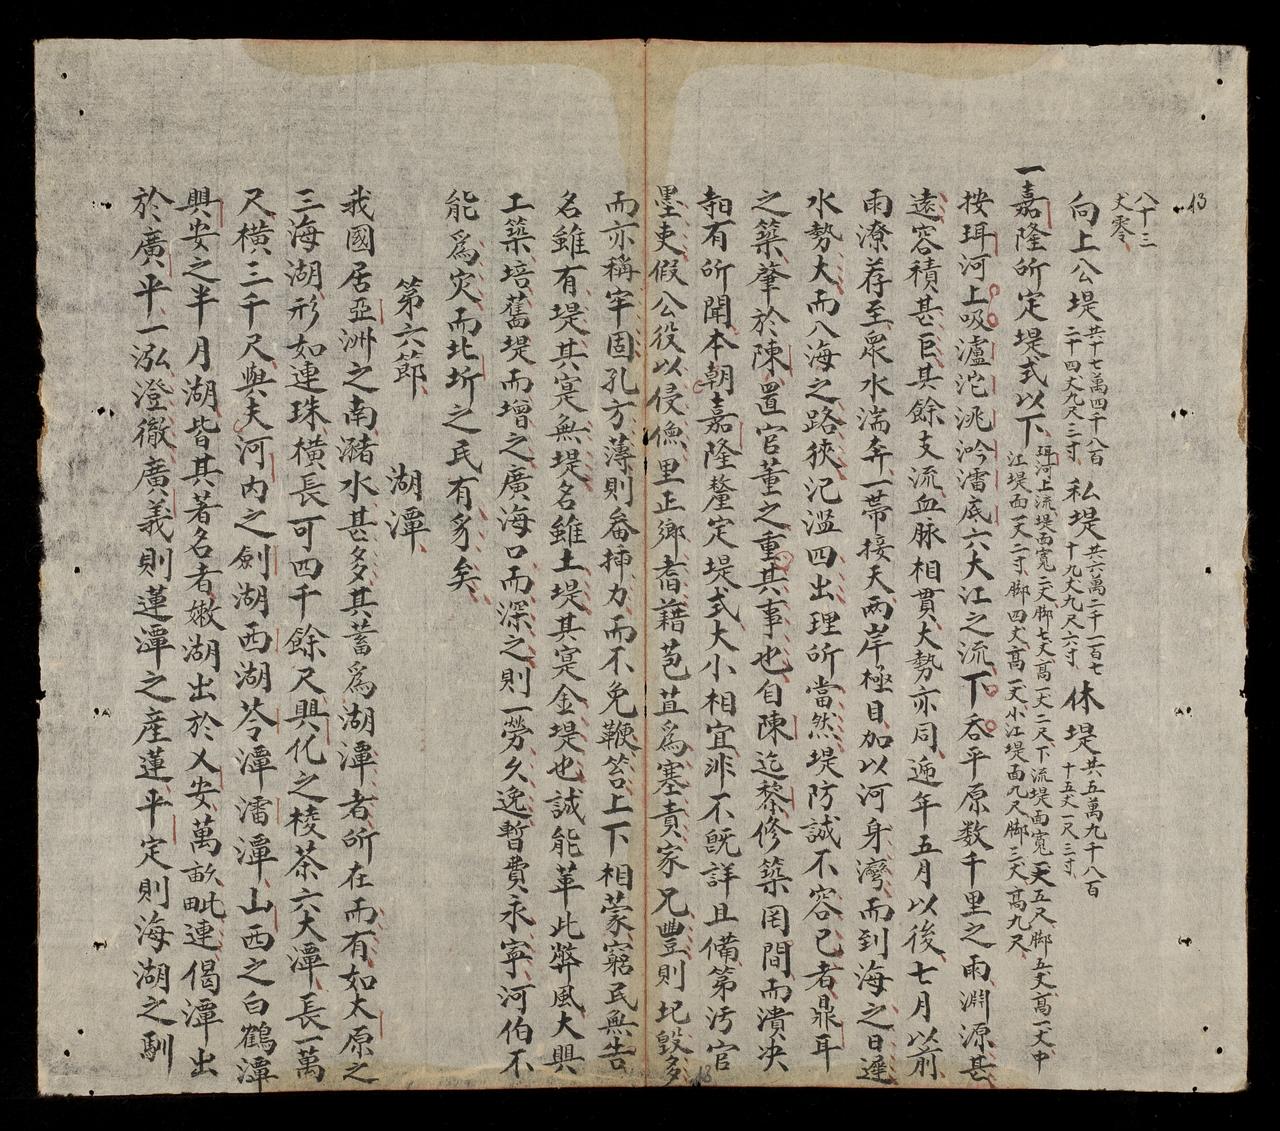 13
八十三
丈零
向上公堤共十七萬四千八百二十四丈九尺三寸私堤共六萬二千一百七十九丈九尺六寸休堤共五萬九千八百十五丈一尺三寸
一嘉隆所定堤式以下珥河上流堤面寬二丈脚七丈高一丈二尺下流堤面寬一丈五尺脚五丈高一丈中江堤面一丈二寸脚四丈高一丈小江堤面九尺脚三丈高九尺
按珥河上吸瀘沱洮吟濡底六大江之流下吞平原数千里之雨淵源甚
遠容積甚巨其餘支流血脉相貫大勢亦同逓年五月以後七月以前
雨潦荐至衆水湍奔一帶接天两岸極目加以河身灣而到海之日遲
水勢大而入海之路狹汜濫四出理所當然堤防誠不容已者鼎耳
之築肇於陳置官董之重其事也自陳迄黎修築罔間而潰决
𥘉有所聞本朝嘉隆釐定堤式大小相宜非不旣詳且備第汚官
墨吏假公役以侵漁里正鄉耆藉苞苴爲塞責家兄豐則圮毀多
而亦稱牢固孔方薄則畚挿力而不免鞭笞上下相蒙窮民無告
名雖有堤其寔無堤名雖土堤其寔金堤也誠能革此弊風大興
工築培舊堤而增之廣海口而深之則一勞久逸暫費永寧河伯不
能爲灾而北圻之民有豸矣
第六節　湖潭
我國居亞洲之南瀦水甚多其蓄爲湖潭者所在而有如太原之
三海湖形如連珠橫長可四千餘尺興化之棱茶六大潭長一萬
尺橫三千尺與夫河内之劍湖西湖苓潭潘潭山西之白鶴潭
興安之半月湖皆其著名者嫩湖出於乂安萬畝毗連偈潭出
於廣平一泓澄徹廣義則蓮潭之産蓮平定則海湖之馴
13